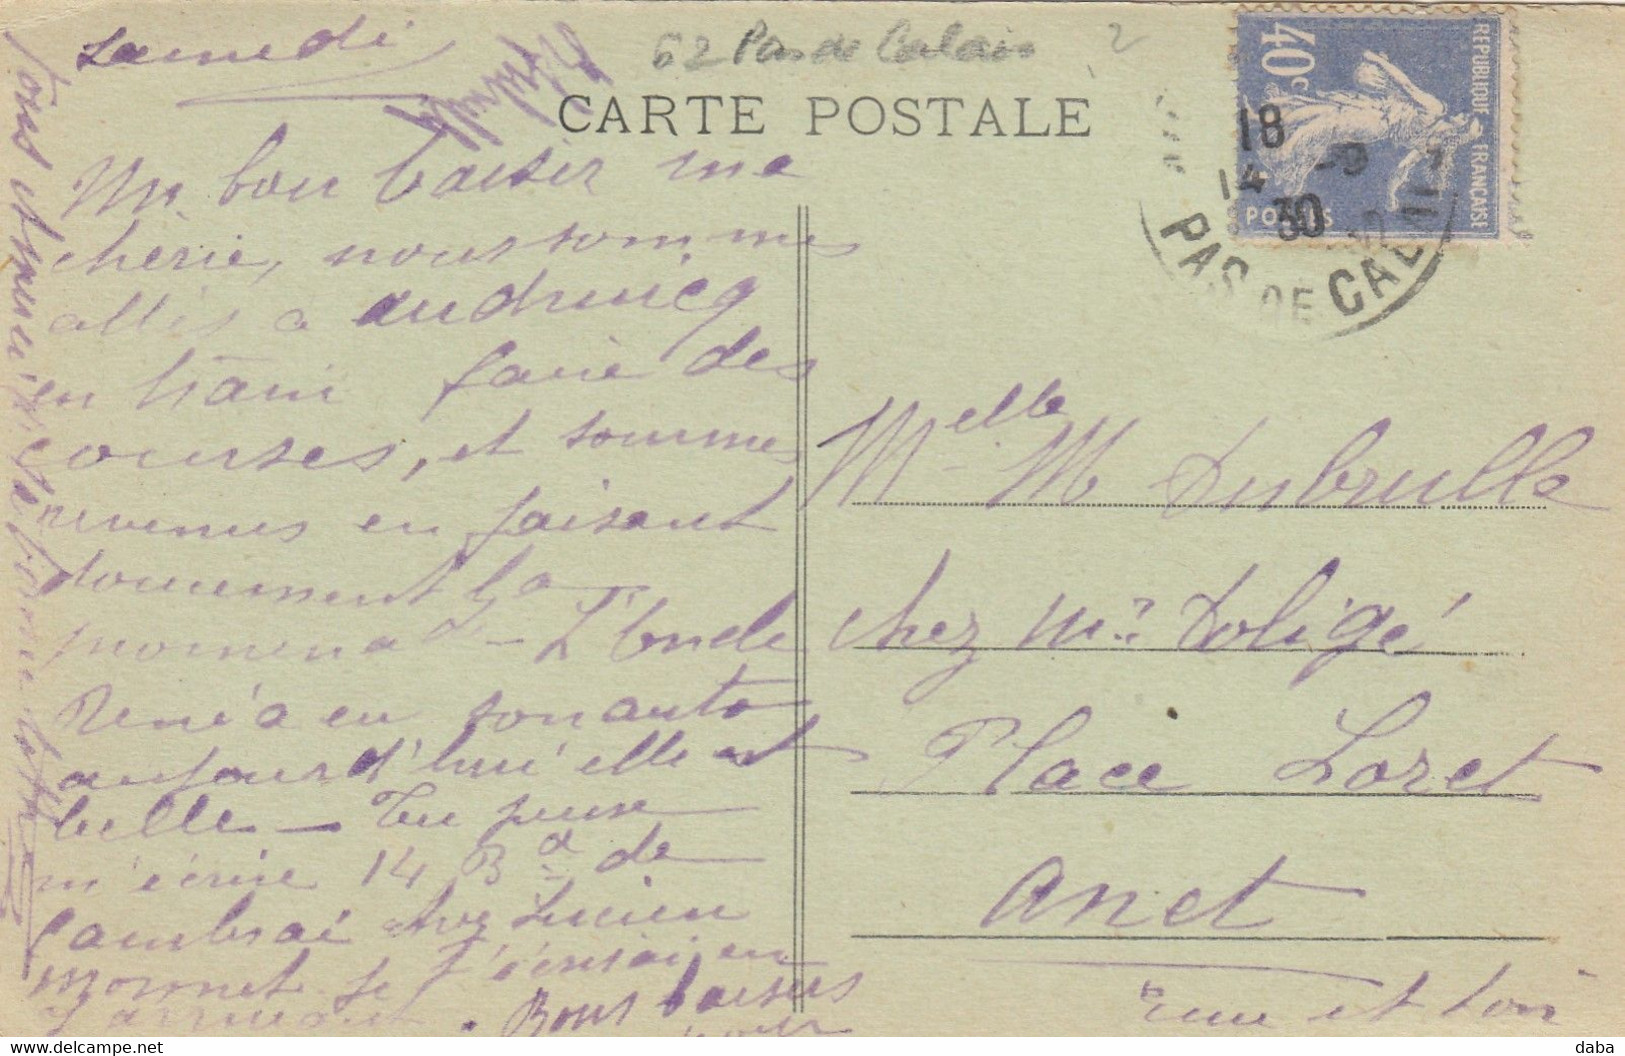 samedi
62 Pas de Calais ?
CARTE POSTALE
REPUBLIQUE FRANCAISE
40c
POSTES
18
14 -9
30
PAS DE CALAIS
Un bon baiser ma
cherie, nous sommes
allés a Audruicq
en train faire des
courses, et sommes
revenus en faisant
doucement la
promenade - L'Oncle
René a eu son auto
aujourd'hui elle est
belle - Tu peux
m'écrire 14 Bd de
Cambrai chez Lucien
Monnet je t'écrirai en
arrivant. Bons baisers
Melle M Dubrulle
chez Mr Doligé
Place Loret
Anet
Eure et Loir
www.delcampe.net
daba